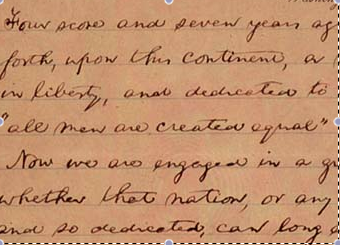 Four score and seven years ag
forth, upon this continent, a
in liberty, and dedicated to
"all men are created equal"
Now we are engaged in a gr
whether that nation, or any
and so dedicated, can long